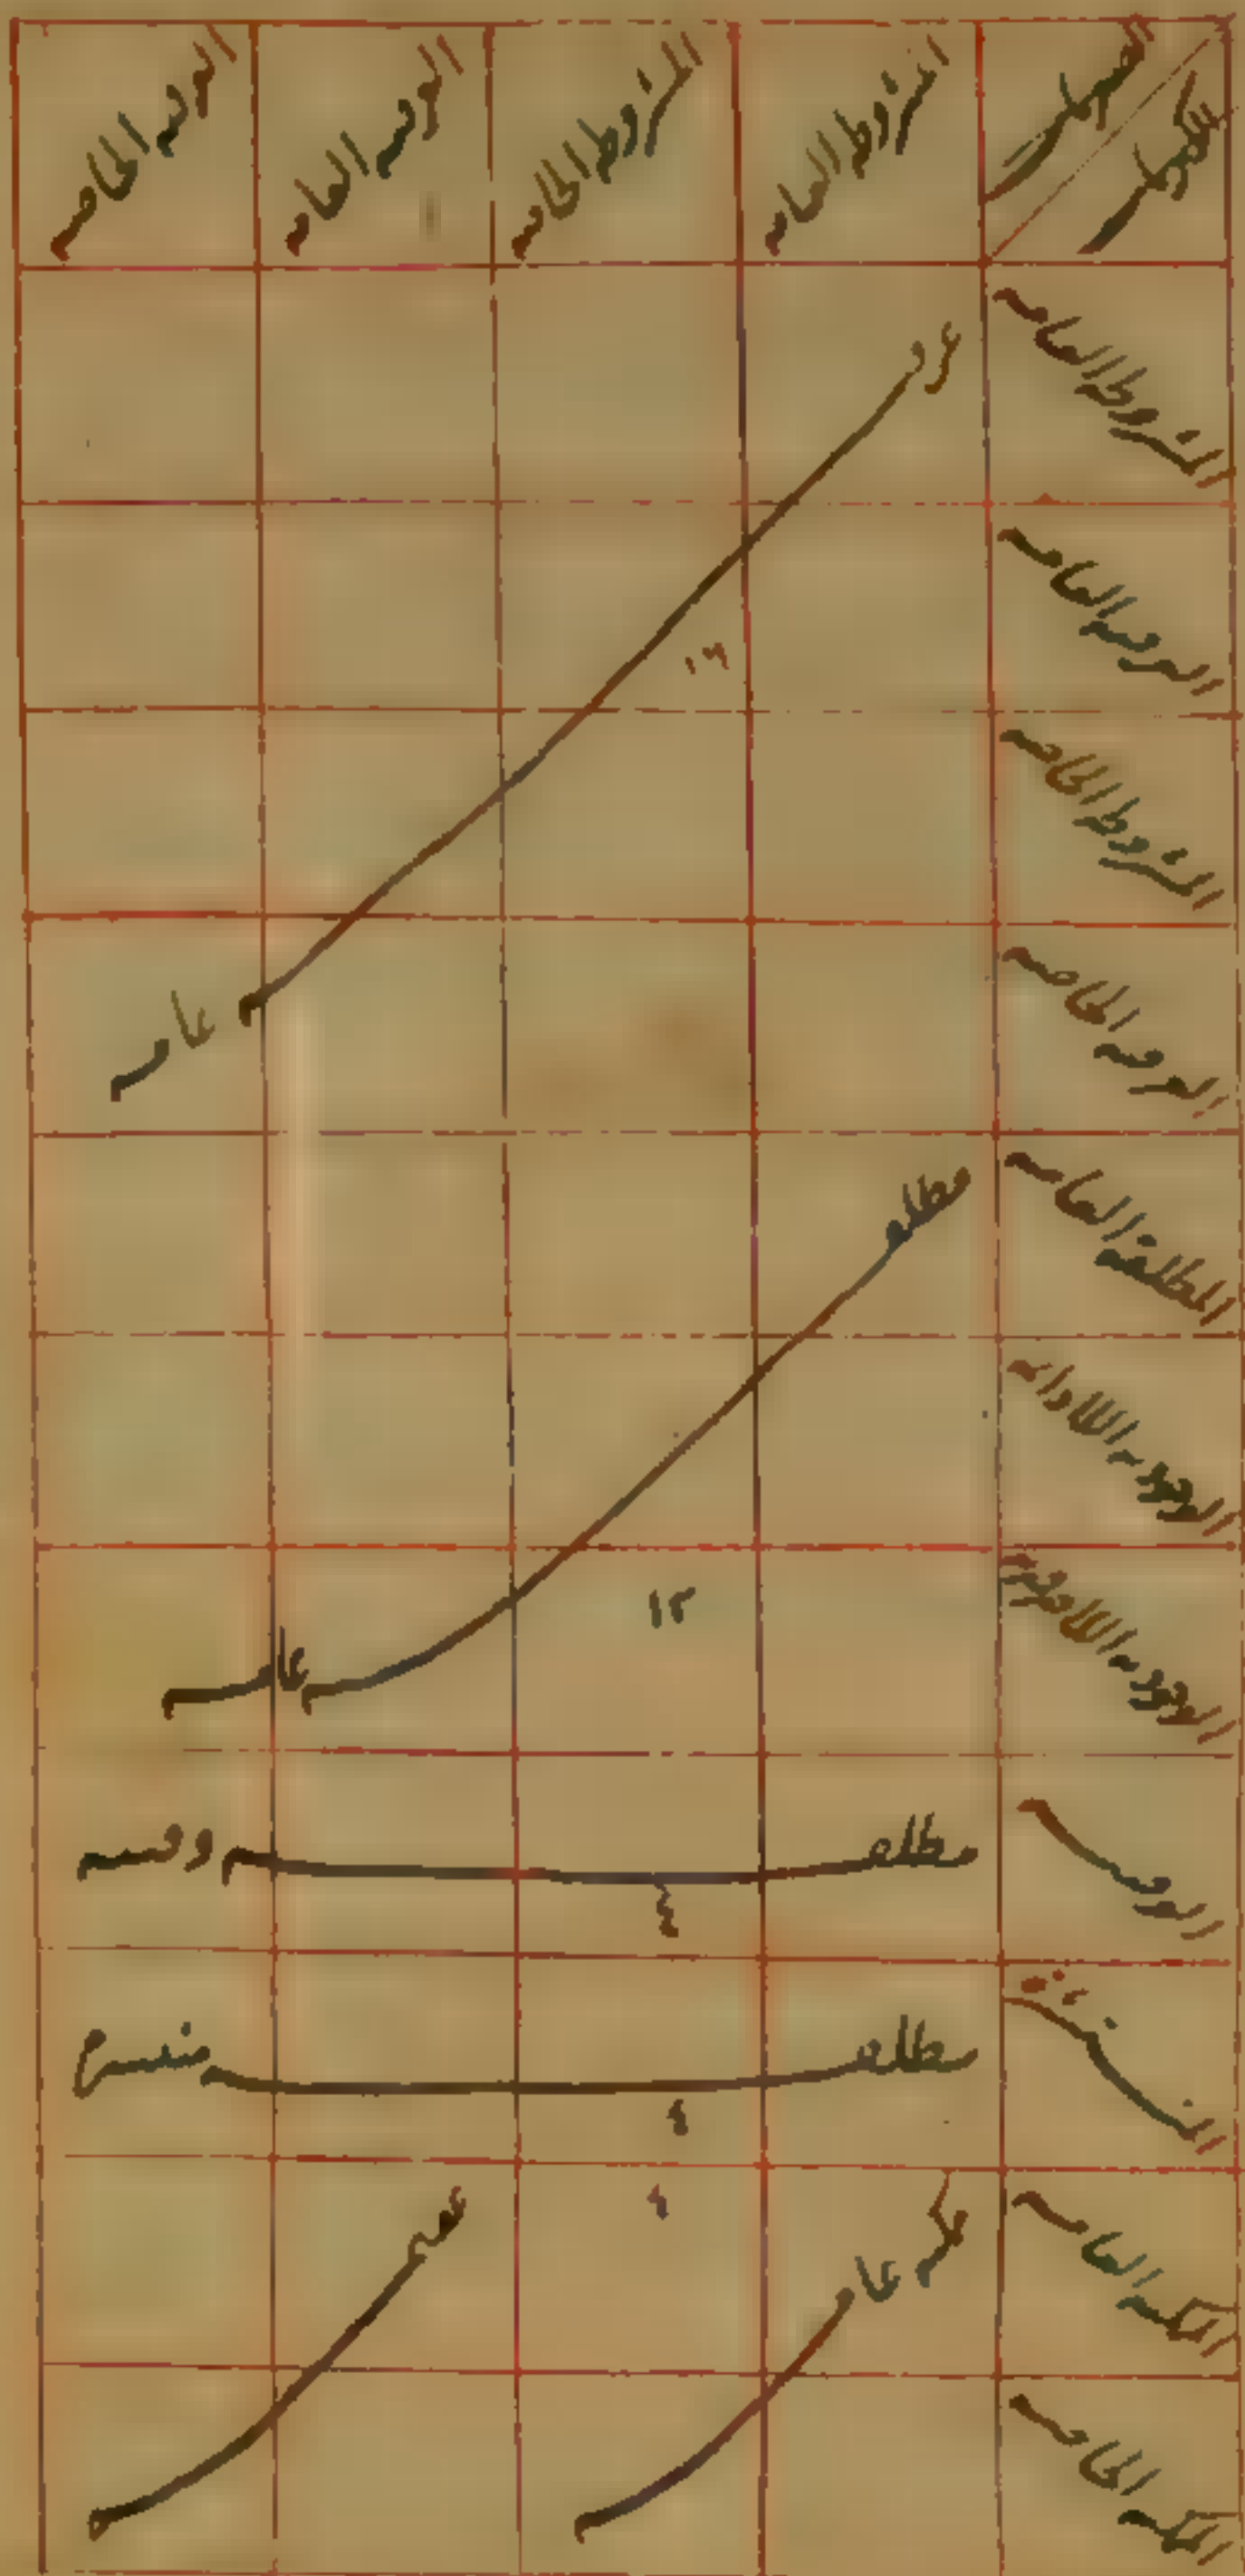 الكبريات
الصغريات
المشروطة العامة
المشروطة الخاصة
العرفية العامة
العرفية الخاصة
المشروطة العامة
العرفية العامة
المشروطة الخاصة
العرفية الخاصة
عرفية عامة
١٦
المطلقة العامة
الوجودية اللادائمة
الوجودية اللاضرورية
مطلقة عامة
١٢
الوقتية
مطلقة وقتية
٤
المنتشرة
مطلقة منتشرة
٤
الممكنة العامة
الممكنة الخاصة
ممكنة عامة
٤
عقيمة